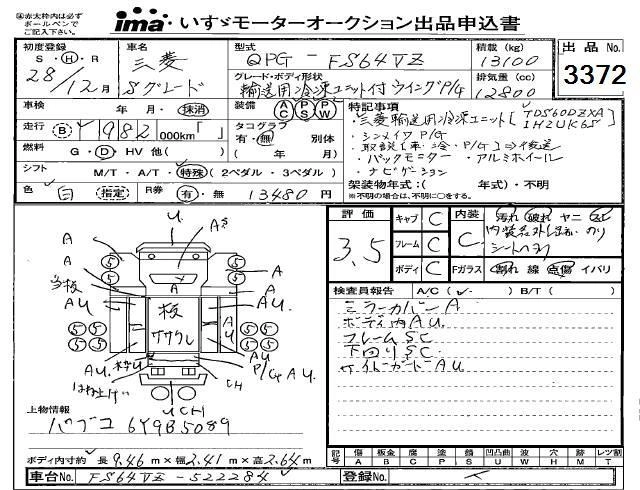 ④赤太枠内は必ず
ボールペンで
ご記入下さい。
ima いすゞモーターオークション出品申込書
初度登録 S・Ⓗ・R 28/12月
車名 三菱 Sグレード
型式 QPG-FS64VZ
積載 (kg) 13100
出品 No. 3372
グレード・ボディ形状 輸送用冷凍ユニット付ウイングP/G
排気量 (cc) 12800
車検 年・月・抹消
装備 AC PS PW
特記事項
・三菱輸送用冷凍ユニット[TDS60DZXA
走行 Ⓑ 982 000km「 」
タコグラフ 有・無 別体 ( 年)
・シンメイワP/G
燃料 G・Ⓓ・HV 他( )
・取説(車・冷・P/G)⇒後送
・バックモーター・アルミホイール
シフト M/T・A/T・特殊(2ペダル・3ペダル)
・ナビゲーション
色 白 (指定) R券 有・無 13480 円
架装物年式:( 年式)・不明
※不明の場合は、不明に○をする。
評価 3.5
キャブ C
フレーム C
ボディ C
内装 C
汚れ 破れ ヤニ
Fガラス 割れ 線 点傷 イバリ
検査員報告 A/C( ) B/T( )
ミラーカバーA
ボディ内AU.
フレームSC
下回りSC
サイドガードAU
U.
A
AS
A
A
A
A
AU
板
ササクレ
AU.
AU
AU.
P/G AU.
CH
UCH
5
5
5
5
上物情報
パブコ 6Y9B5089
ボディ内寸約 長 9.46 m×幅 2.41 m×高 2.64 m
記号 傷A 板金B 腐C 塗P 錆S 凹凸曲U 波W 穴H 欠M レツ割T
車台No. FS64VZ-522284
登録No.